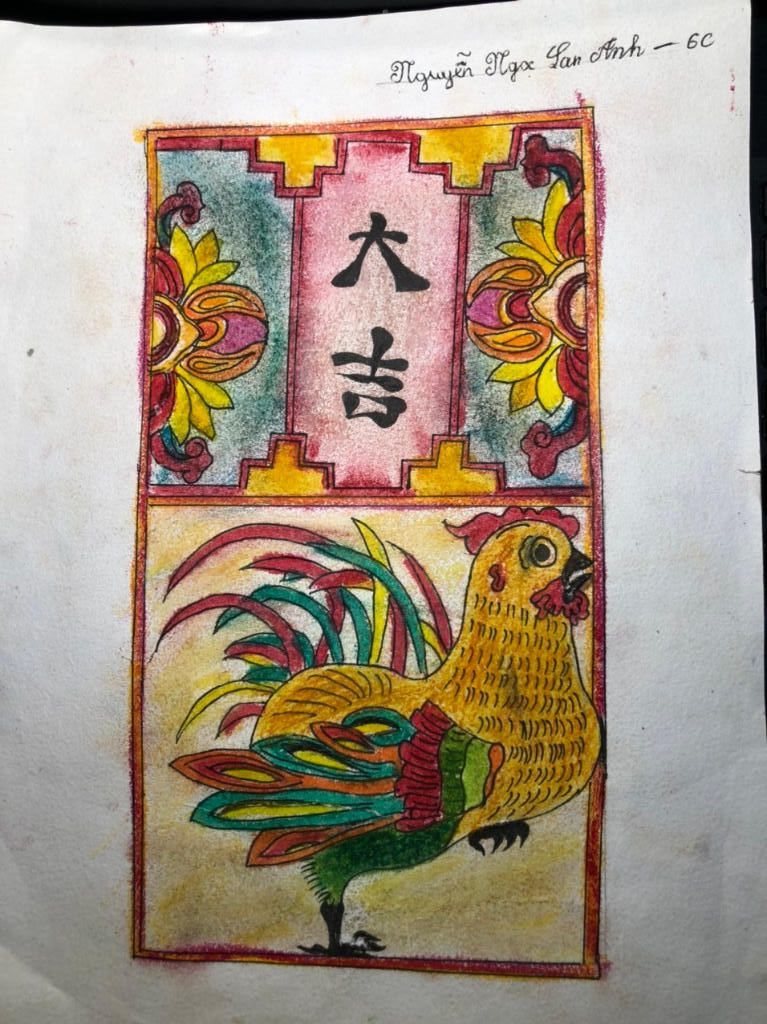 Nguyễn Ngọc Lan Anh - 6C
大
吉